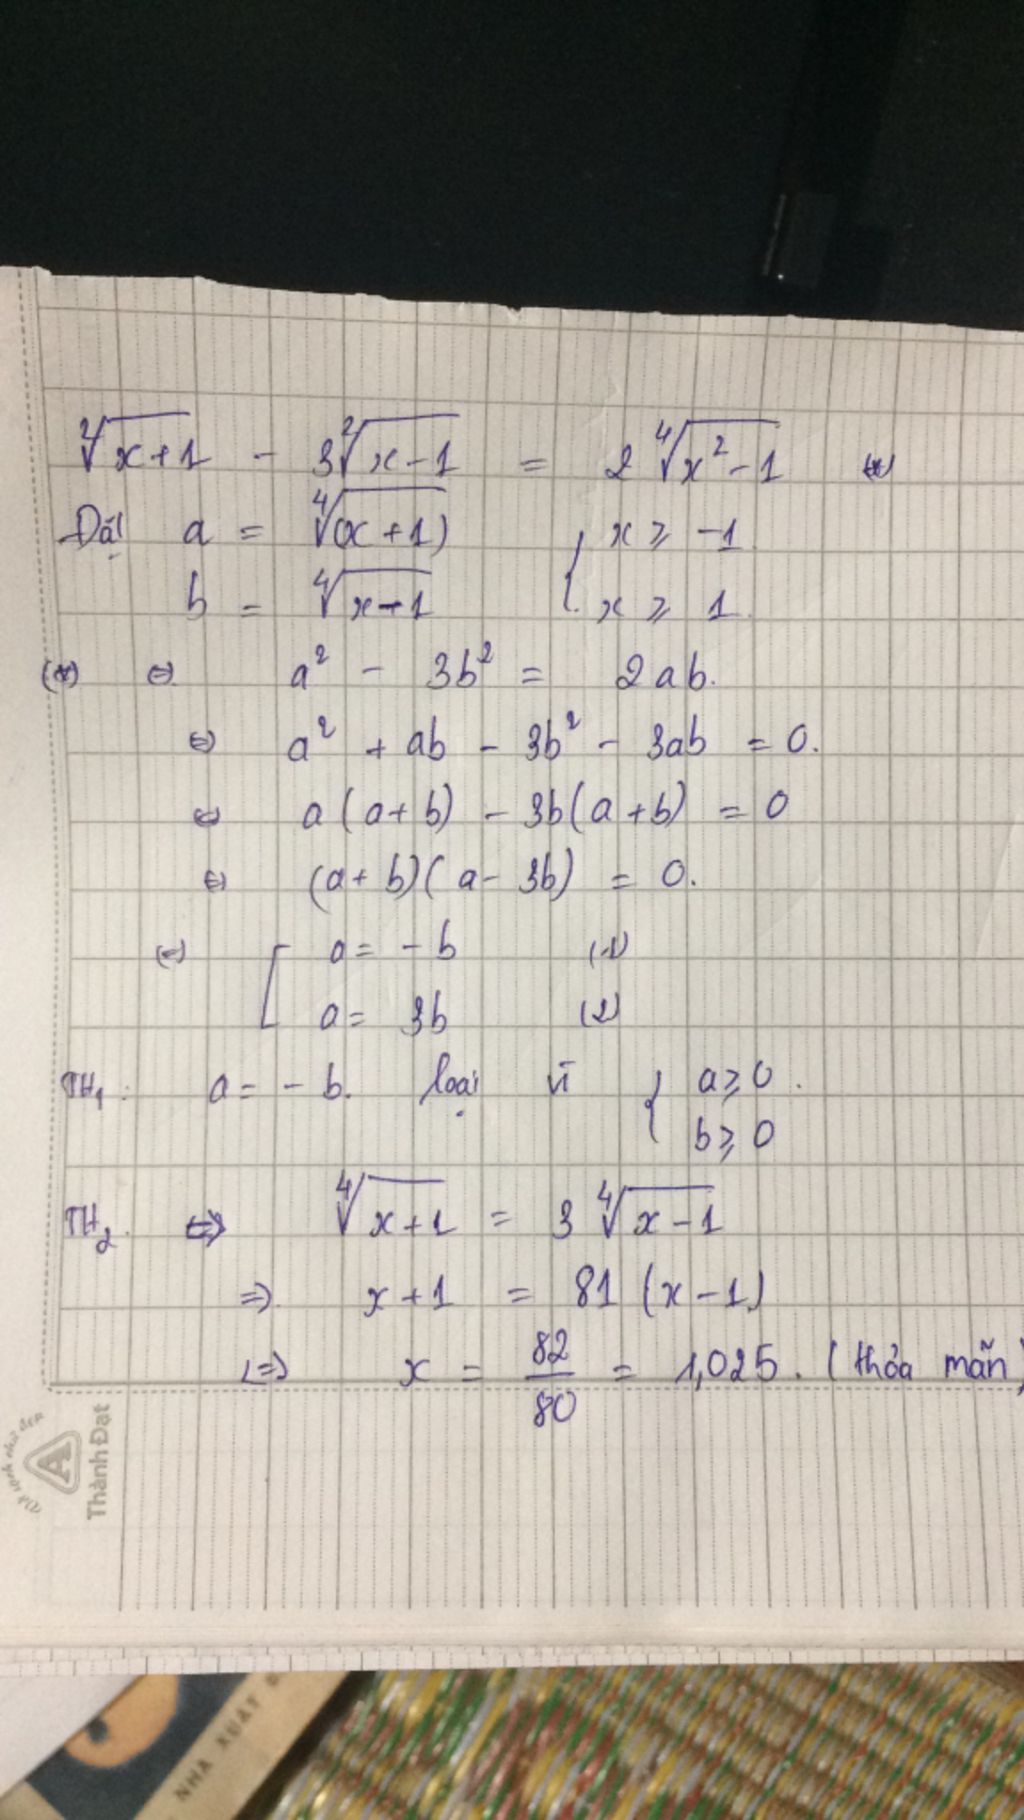 ²√(x+1) - 3 ²√(x-1) = 2 ⁴√(x²-1) (*)
Đặt a = ⁴√(x+1) { x ≥ -1
b = ⁴√(x-1) x ≥ 1
(*) ⇔ a² - 3b² = 2ab.
⇔ a² + ab - 3b² - 3ab = 0.
⇔ a(a+b) - 3b(a+b) = 0
⇔ (a+b)(a-3b) = 0.
⇔ [ a = -b (1)
a = 3b (2)
TH₁: a = -b. loại vì { a ≥ 0.
b ≥ 0
TH₂. ⇔ ⁴√(x+1) = 3 ⁴√(x-1)
⇒ x+1 = 81 (x-1)
⇔ x = 82/80 = 1,025. (thỏa mãn)
Thành Đạt
NHÀ XUẤT